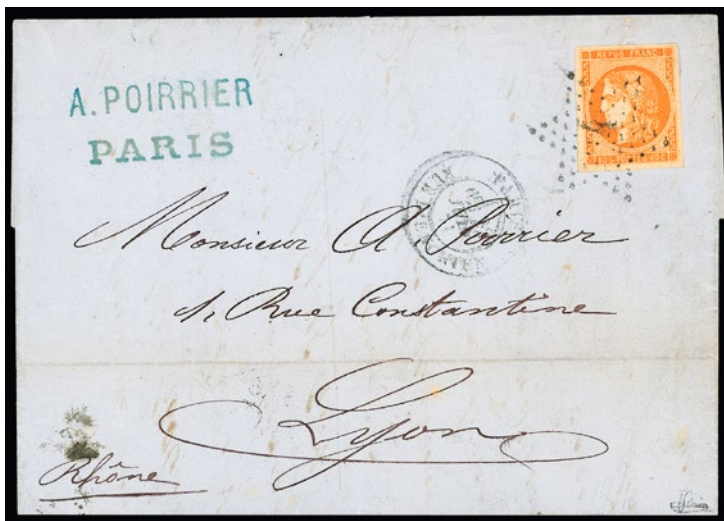 A. POIRRIER
PARIS
REPUB FRANC
40 C
Monsieur A Poirrier
1, Rue Constantine
Lyon
Rhône